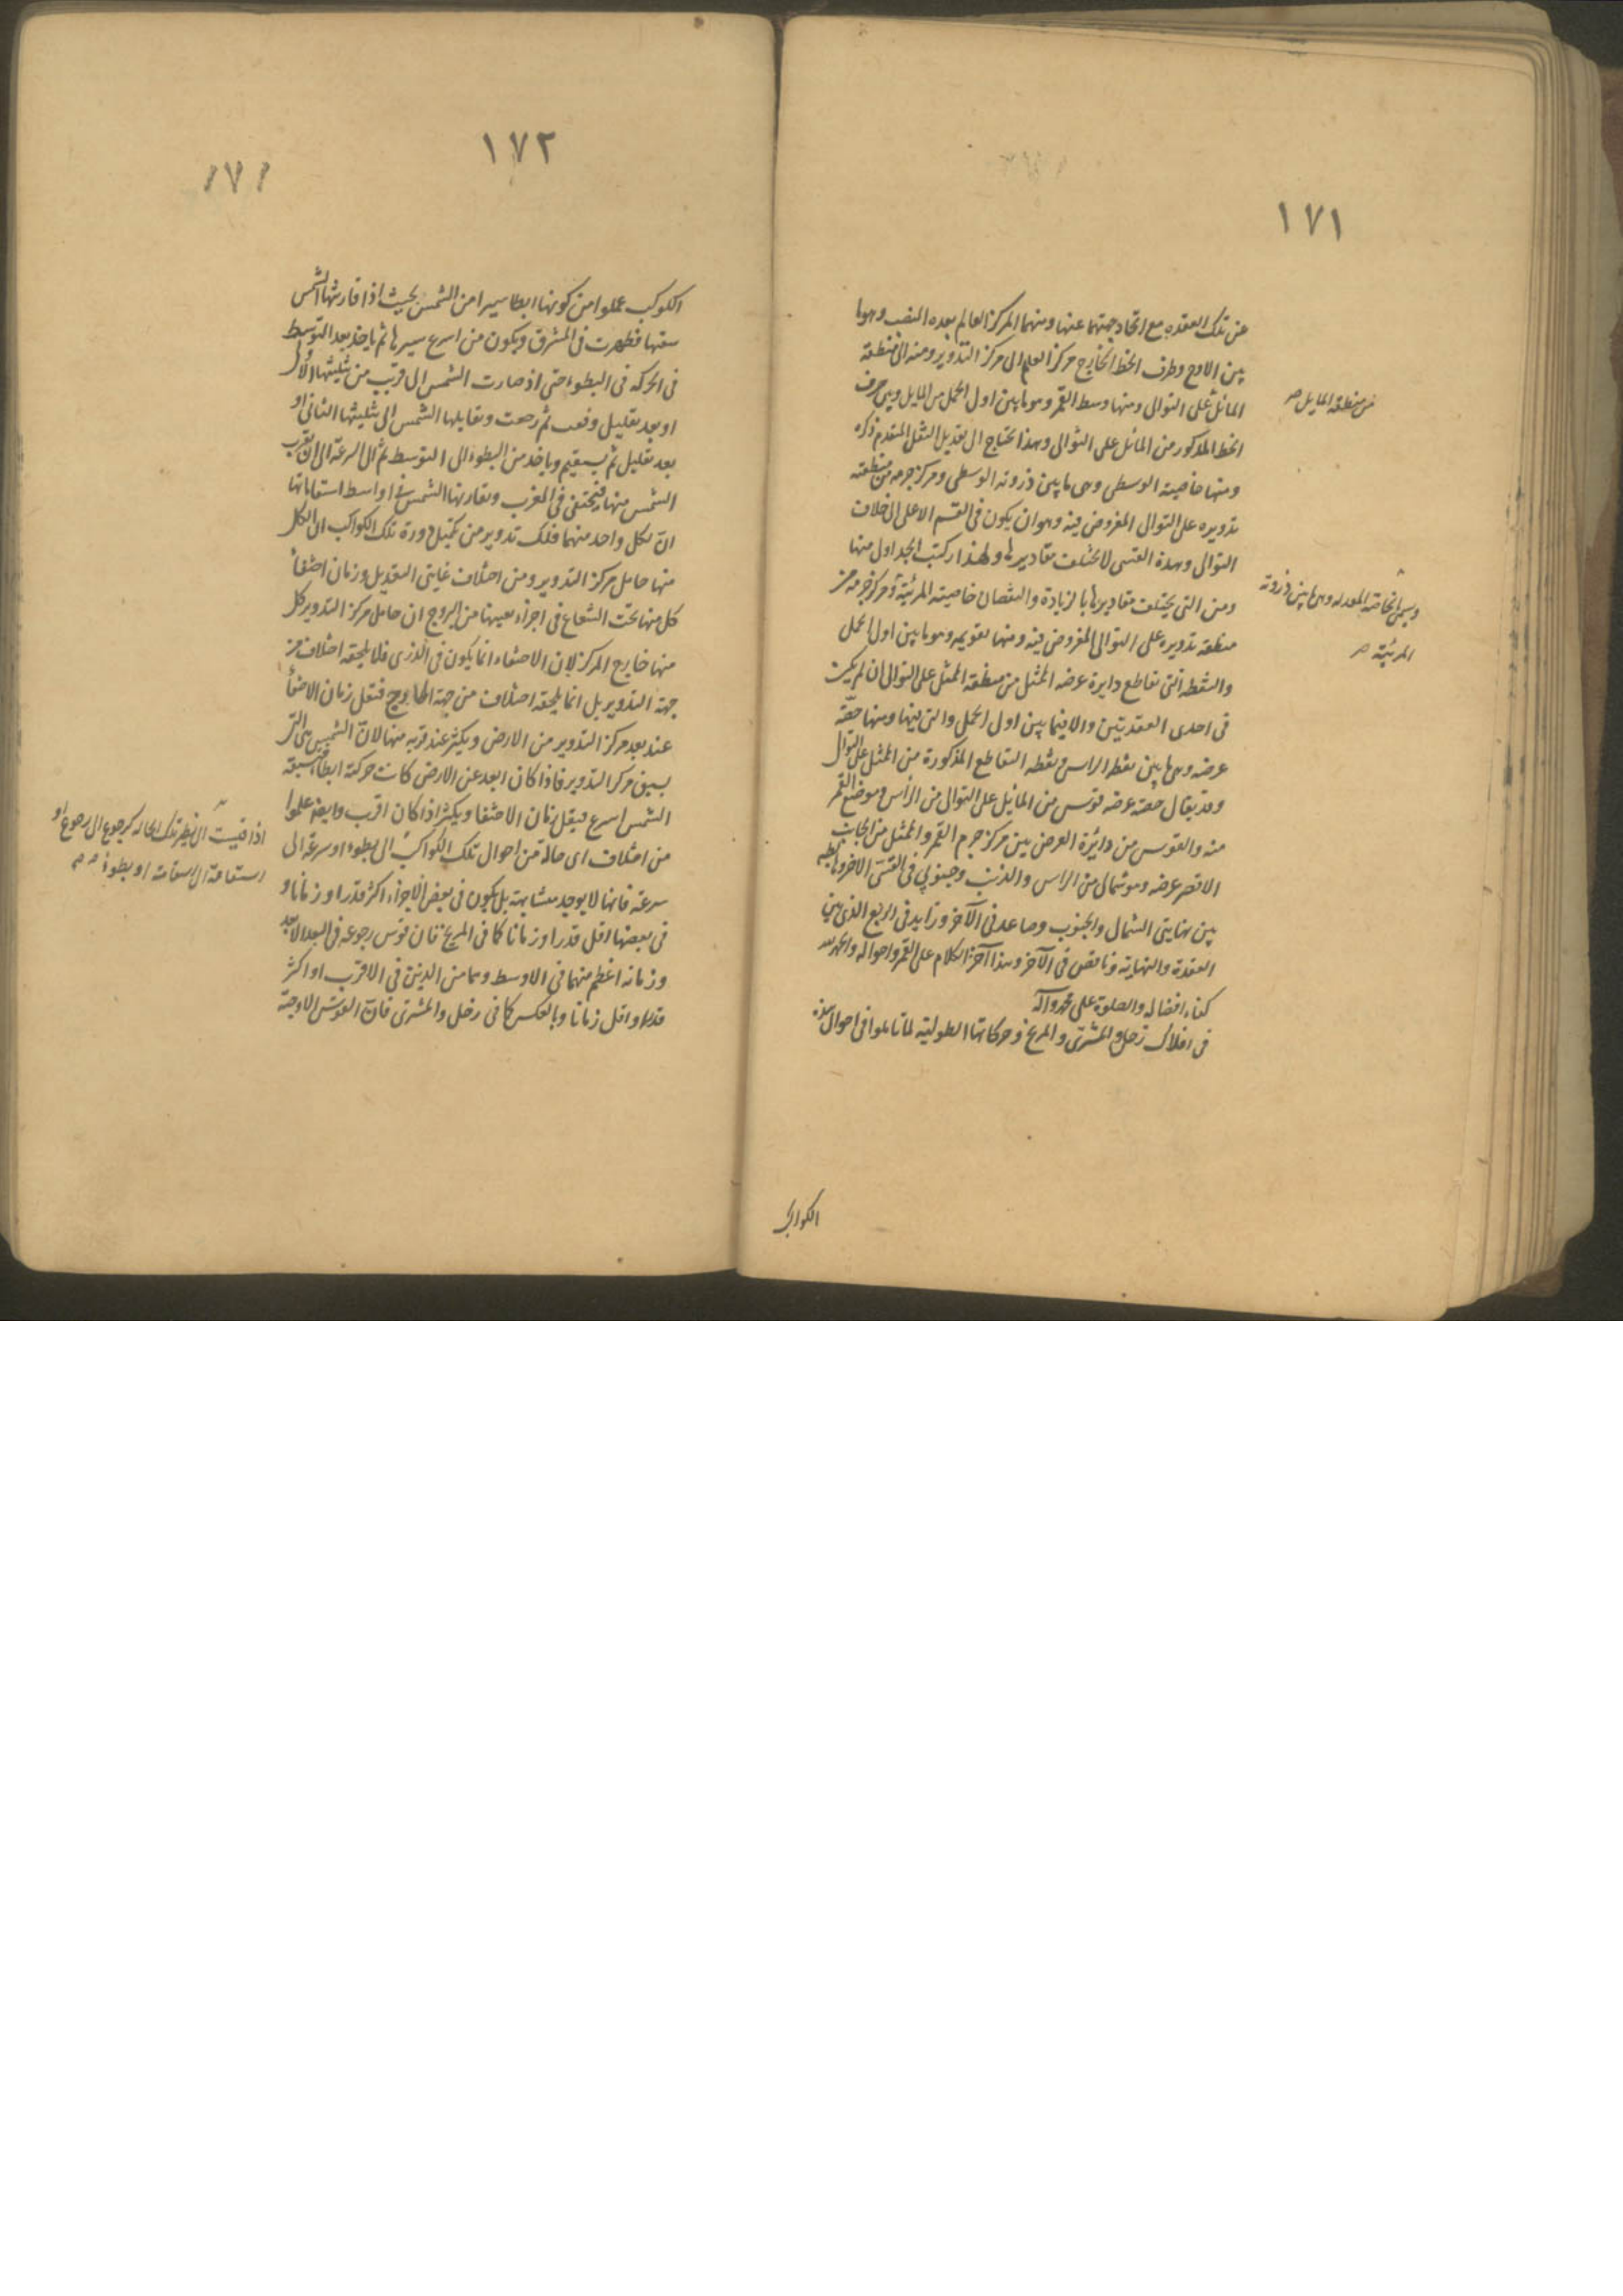 ١٧١
عن تلك العقده مع اتحاد جهتهما عنها ومنها المركز العالم بعده المنصب وهو ما
بين الاوج وطرف الخط الخارج مركز العلم الى مركز التدوير ومنه الى منطقة
المائل على التوالى ومنها وسط القمر وهو ما بين اول الحمل من المايل وبين طرف
من منطقة المايل صح
الخط المذكور من المائل على التوالى وهذا يحتاج الى تعديل النقل المتقدم ذكره
ومنها خاصيته الوسطى وهى ما بين ذروته الوسطى ومركز جرمه من منطقة
تدويره على التوالى المفروض فيه وهو ان يكون فى القسم الاعلى الى خلاف
التوالى وهذه القسى لا يختلف مقاديرها ولهذا ركبت الجداول منها
ومن التى يختلف مقاديرها بالزيادة والنقصان خاصيته المرئية و مركز جرمه من
ويسمى الخاصة المعدله وهى ما بين ذروته
المرئية صح
منطقة تدويره على التوالى المفروض فيه ومنها تقويمه وهو ما بين اول الحمل
والنقطه التى تقاطع دايرة عرضه الممثل من منطقة الممثل على التوالى ان لم يكن
فى احدى العقدتين والا فيما بين اول الحمل والتى فيها ومنها حصّة
عرضه وهى ما بين نقطه الراس ونقطه التقاطع المذكورة من الممثل على التوالى
وقد يقال حصّة عرضه قوس من المايل على التوالى من الرأس وموضع القمر
منه والقوس من دائرة العرض بين مركز جرم القمر والممثل من الجانب
الاقصر عرضه وهو شمالى من الراس والذنب وجنوبى فى القسى الاخر وهابط
بين نهايتى الشمال والجنوب وصاعد فى الآخر وزايد فى الربع الذى بين
العقدة والنهاية وناقص فى الآخر وهذا آخر الكلام على القمر واحواله والحمد لله
كفاء افضاله والصلوة على محمد وآله
فى افلاك زحل والمشترى والمريخ وحركاتها الطولية لما تاملوا فى احوال هذه
الكواكب
١٧٢
١٧١
الكوكب عملوا من كونها ابطا سيرا من الشمس بحيث اذا قارنتها الشمس
سبقتها فظهرت فى المشرق ويكون من اسرع سيرها ثم ياخذ بعد التوسط
فى الحركه فى البطوء حتى اذ صارت الشمس الى قرب من تثليثها الاول
او بعد بقليل وقفت ثم رجعت وتقابلها الشمس الى تثليثها الثانى او
بعد بقليل ثم يستقيم وياخذ من البطوء الى التوسط ثم الى السرعة الى ان يقرب
الشمس منها فيختفى فى المغرب وتقارنها الشمس فى اواسط استقاماتها
ان لكل واحد منهما فلك تدوير من تكميل دورة تلك الكواكب ان لكل
منها حامل مركز التدوير ومن اختلاف غايتى التعديل وزمان اختفاء
كل منها تحت الشعاع فى اجزاء بعينها من البروج ان حامل مركز التدوير كل
منها خارج المركز لان الاختفاء انما يكون فى الذرى فلا يلحقه اختلاف من
جهة التدوير بل انما يلحقه اختلاف من جهة الخارج فتقل زمان الاختفاء
عند بعد مركز التدوير من الارض ويكثر عند قربه منها لان الشمس هى التى
يسبق مركز التدوير فاذا كان ابعد عن الارض كانت حركته ابطا فسبقته
الشمس اسرع فيقل زمان الاختفا ويكثر اذا كان اقرب وايضا علموا
من اختلاف اى حالة من احوال تلك الكواكب الى بطوء او سرعة الى
اذا قيست الى نظير تلك الحاله كرجوع الى رجوع او
استقامة الى استقامة او بطوء صح
سرعة فانها لا يوجد متشابهة بل يكون فى بعض الاجزاء اكثر قدرا وزمانا و
فى بعضها اقل قدرا وزمانا كما فى المريخ فان قوس رجوعه فى البعد الابعد
وزمانه اعظم منهما فى الاوسط وهما من الدين فى الاقرب او اكثر
قدرا واقل زمانا وبالعكس كما فى زحل والمشترى فان القوس الاوجية